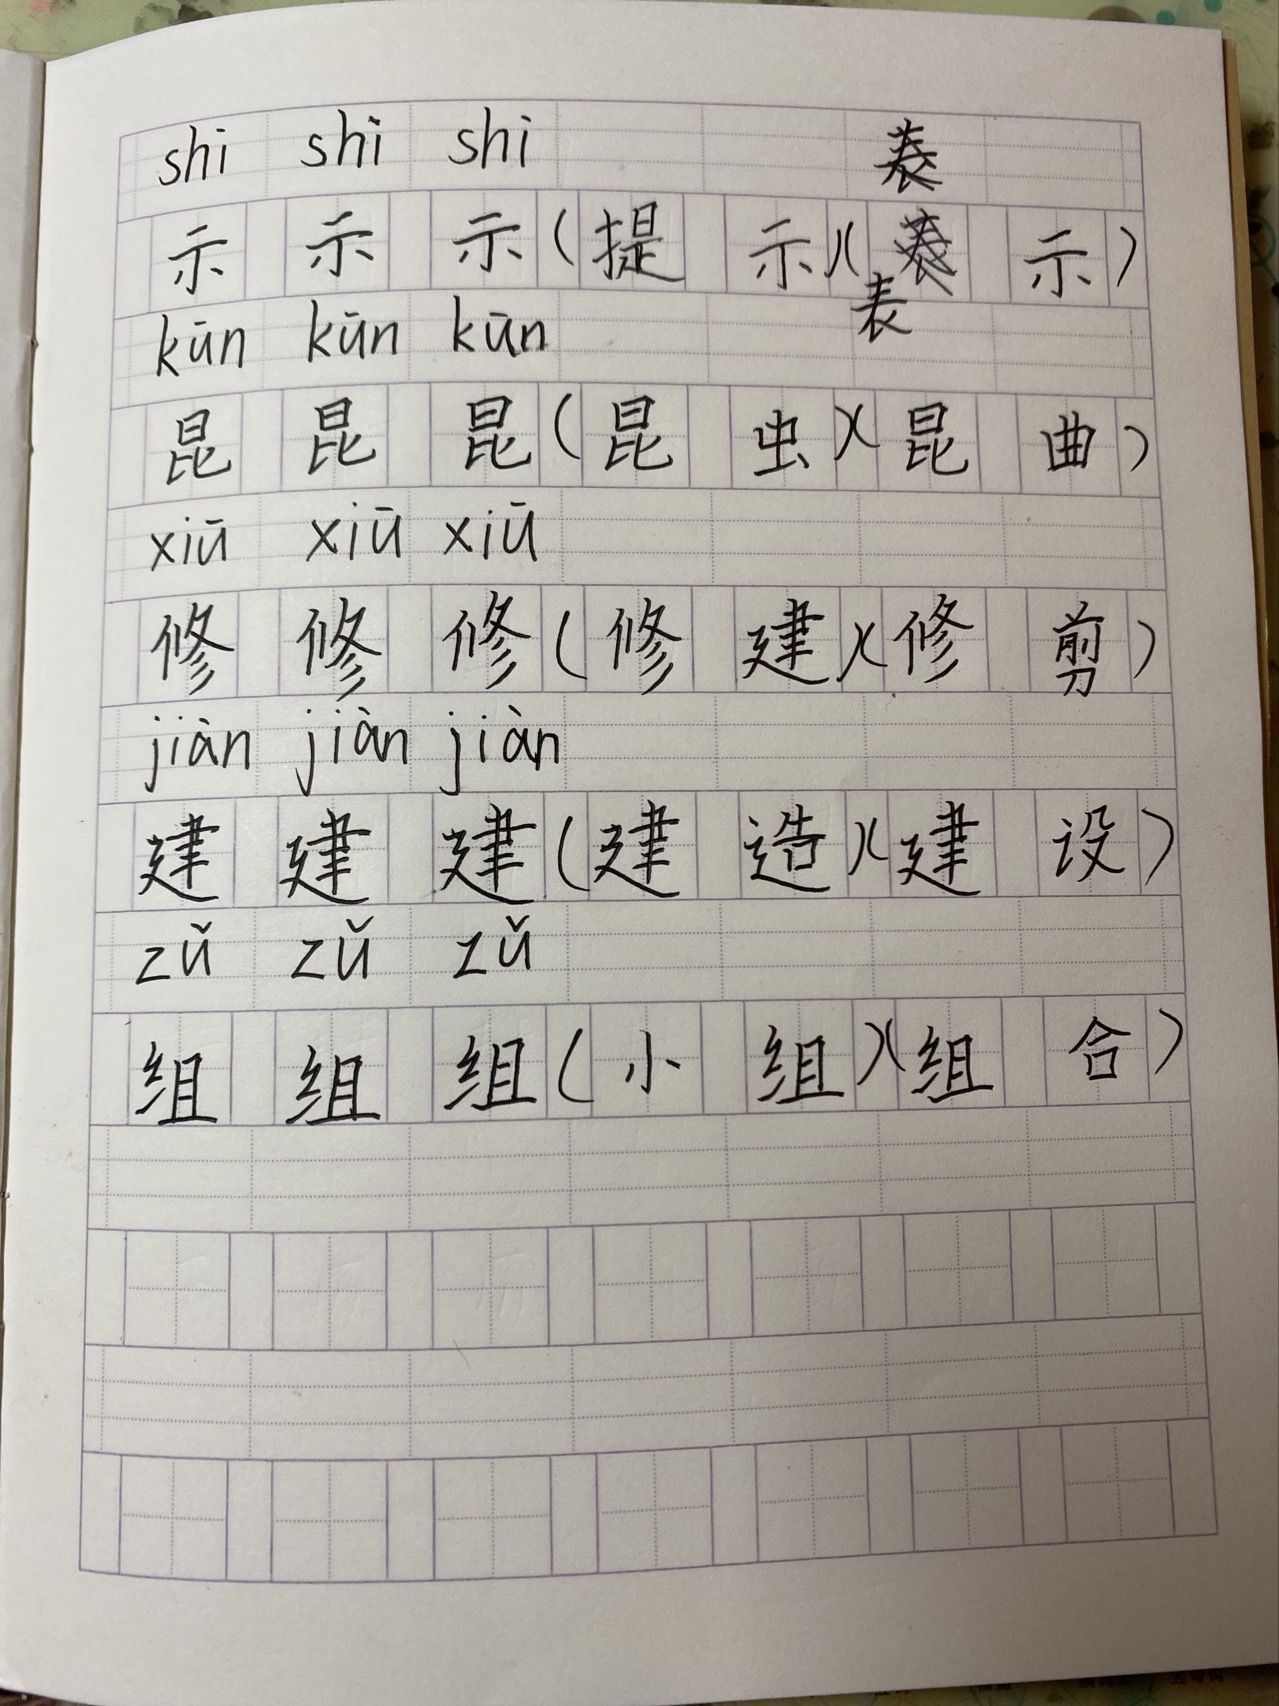 shì shì shì
示 示 示 (提 示)(表 示)
kūn kūn kūn
昆 昆 昆 (昆 虫)(昆 曲)
xiū xiū xiū
修 修 修 (修 建)(修 剪)
jiàn jiàn jiàn
建 建 建 (建 造)(建 设)
zǔ zǔ zǔ
组 组 组 (小 组)(组 合)